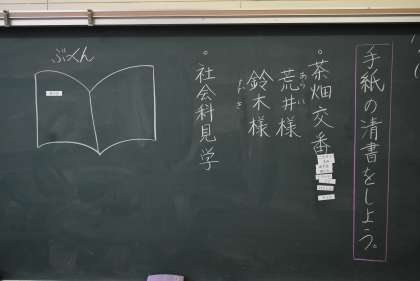 手紙の清書をしよう。
。茶畑交番
荒井様
あらい
鈴木様
。社会科見学
ぶくん